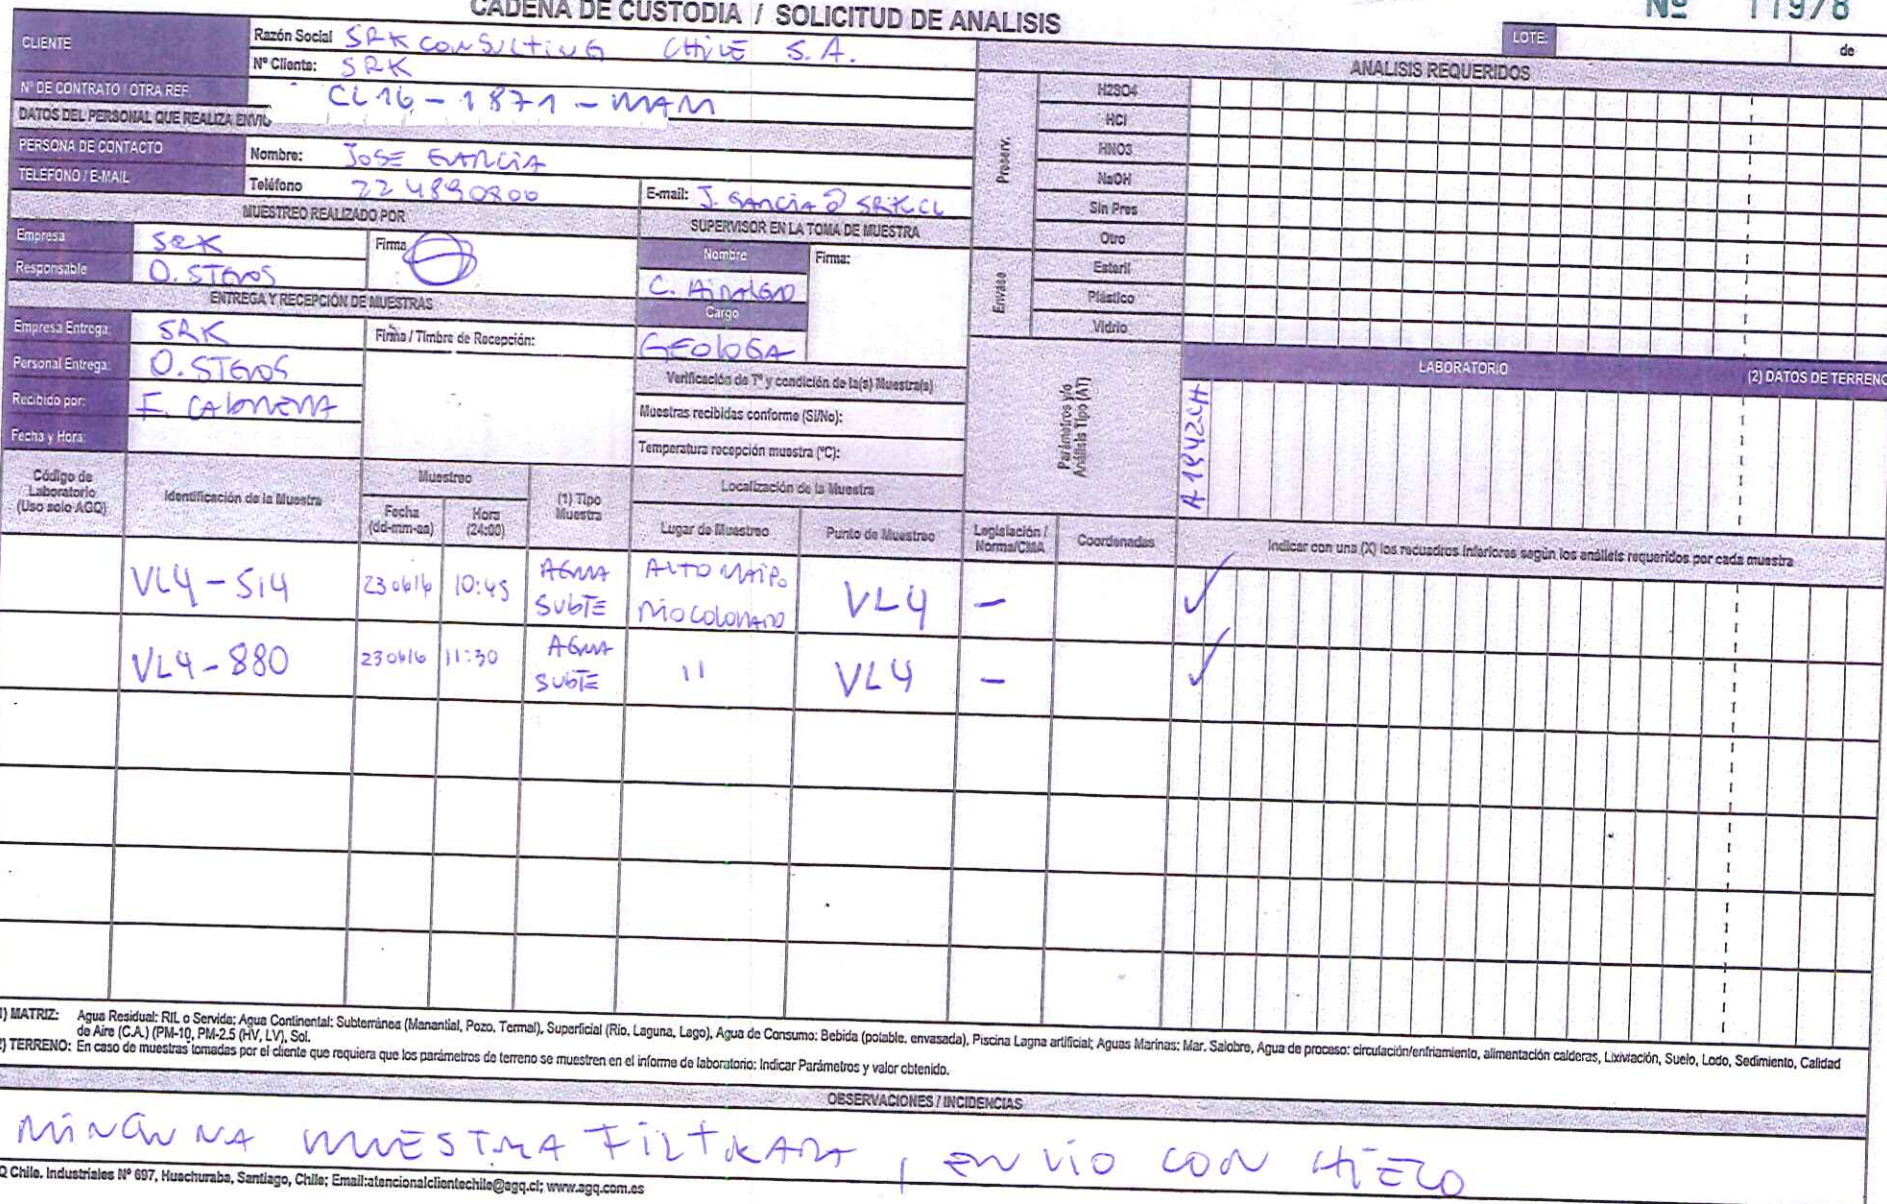 CADENA DE CUSTODIA / SOLICITUD DE ANALISIS
Nº 11978
LOTE: de
CLIENTE
Razón Social SRK CONSULTING CHILE S.A.
Nº Cliente: SRK
Nº DE CONTRATO / OTRA REF.
CL16-1871-MAM
DATOS DEL PERSONAL QUE REALIZA ENVIO
PERSONA DE CONTACTO
Nombre: JOSE GARCIA
TELEFONO / E-MAIL
Teléfono 224890800
E-mail: J.GARCIA@SRK.CL
MUESTREO REALIZADO POR
Empresa SRK
Firma
Responsable
SUPERVISOR EN LA TOMA DE MUESTRA
Nombre
Firma:
C. HIDALGO
Cargo
GEOLOGA
ENTREGA Y RECEPCIÓN DE MUESTRAS
Empresa Entrega: SRK
Firma / Timbre de Recepción:
Personal Entrega:
Recibido por: F.
Fecha y Hora:
Verificación de Tº y condición de la(s) Muestra(s)
Muestras recibidas conforme (Si/No):
Temperatura recepción muestra (ºC):
ANALISIS REQUERIDOS
Preserv.
H2SO4
HCl
HNO3
NaOH
Sin Pres
Otro
Envase
Esteril
Plástico
Vidrio
Parámetros y/o
Análisis Tipo (AT)
LABORATORIO
(2) DATOS DE TERRENO
Código de
Laboratorio
(Uso solo AGQ)
Identificación de la Muestra
Muestreo
Fecha
(dd-mm-aa)
Hora
(24:00)
(1) Tipo
Muestra
Localización de la Muestra
Lugar de Muestreo
Punto de Muestreo
Legislación /
Norma/CMA
Coordenadas
Indicar con una (X) los recuadros inferiores según los análisis requeridos por cada muestra
VL4-514 230616 10:45 AGUA SUBTE ALTO MAIPO RIO COLORADO VL4 - ✓
VL4-880 230616 11:30 AGUA SUBTE 11 VL4 - ✓
1) MATRIZ: Agua Residual: RIL o Servida; Agua Continental: Subterránea (Manantial, Pozo, Termal), Superficial (Rio, Laguna, Lago), Agua de Consumo: Bebida (potable, envasada), Piscina Lagna artificial; Aguas Marinas: Mar. Salobre, Agua de proceso: circulación/enfriamiento, alimentación calderas, Lixiviación, Suelo, Lodo, Sedimiento, Calidad
de Aire (C.A.) (PM-10, PM-2.5 (HV, LV), Sol.
2) TERRENO: En caso de muestras tomadas por el cliente que requiera que los parámetros de terreno se muestren en el informe de laboratorio: Indicar Parámetros y valor obtenido.
OBSERVACIONES / INCIDENCIAS
NINGUNA MUESTRA FILTRADA, ENVIO CON HIELO
Q Chile. Industriales Nº 697, Huechuraba, Santiago, Chile; Email:atencionalclientechile@agq.cl; www.agq.com.es